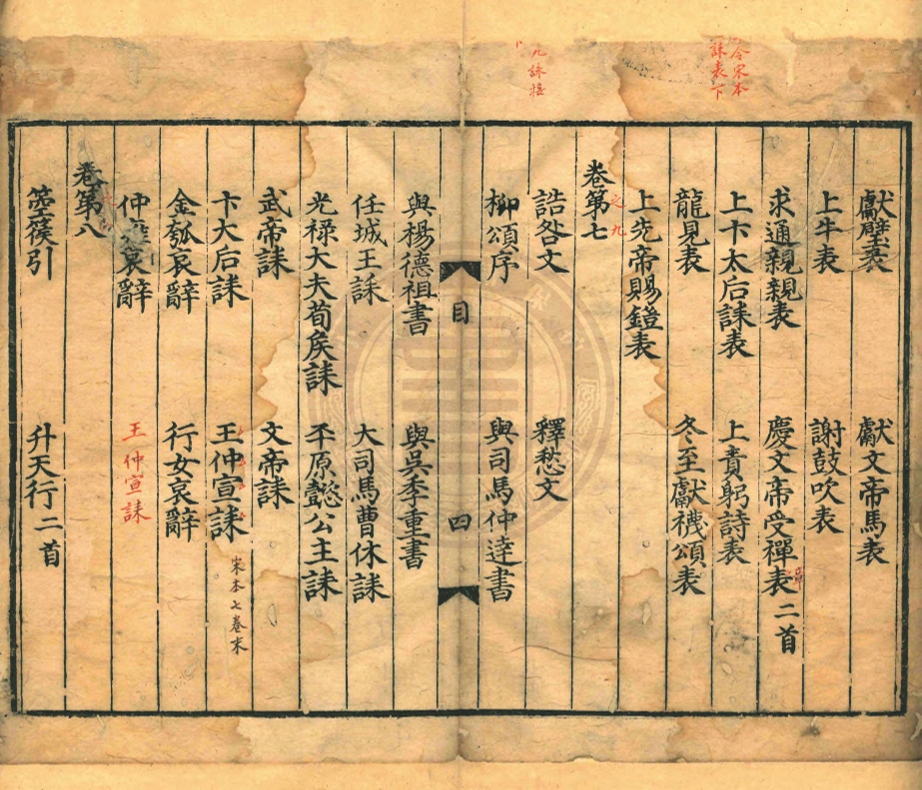 獻璧表　獻文帝馬表
上牛表　謝鼓吹表
求通親親表　慶文帝受禪表二首
上卞太后誄表　上責躬詩表
龍見表　冬至獻襪頌表
上先帝賜鎧表
卷第七
誥咎文　釋愁文
柳頌序　與司馬仲達書
目　四
與楊德祖書　與吳季重書
任城王誄　大司馬曹休誄
光祿大夫荀侯誄　平原懿公主誄
武帝誄　文帝誄
卞太后誄　王仲宣誄　宋本七卷末
金瓠哀辭　行女哀辭
仲雍哀辭　王仲宣誄
卷第八
箜篌引　升天行二首
今宋本
誄表下
九